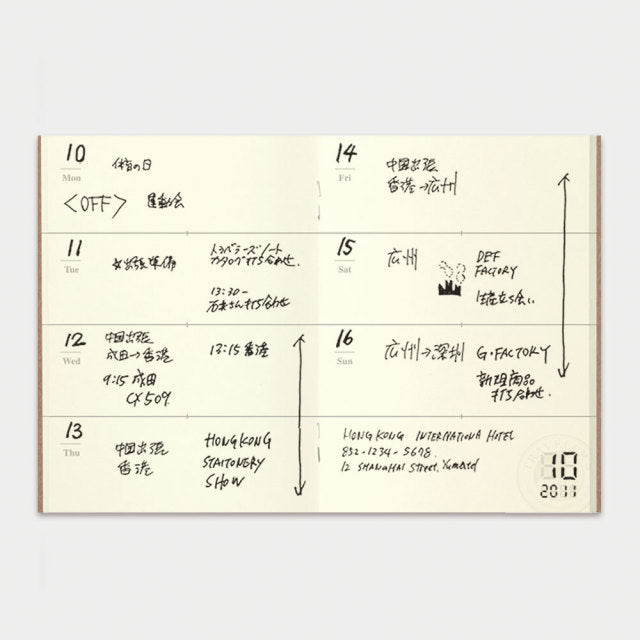 10
Mon
体育の日
<OFF> 運動会
11
Tue
出張準備
トラベラーズノート
カタログ打ち合わせ.
13:30-
さん打ち合わせ
12
Wed
中国出張
成田→香港
9:15 成田
CX509
13:15 香港
13
Thu
中国出張
香港
HONGKONG
STAITONERY
SHOW
14
Fri
中国出張
香港→広州
15
Sat
広州
DEF
FACTORY
立ち会い
16
Sun
広州→深圳
G・FACTORY
新規商品
打ち合わせ.
HONG KONG INTERNATIONA HOTEL
852-1234-5678.
12 SHANGHAI Street,
10
2011